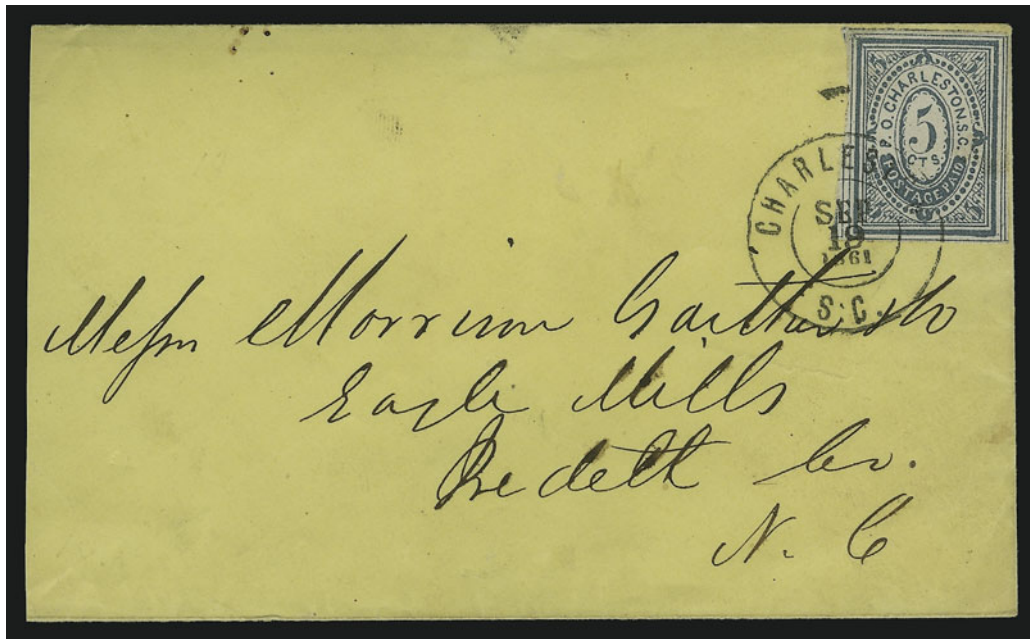 P. O. CHARLESTON. S. C.
5
CTS
POSTAGE PAID
CHARLES
SEP
19
1861
S. C.
Messrs Morrison Gaither & Co
Eagle Mills
Iredell Co.
N. C